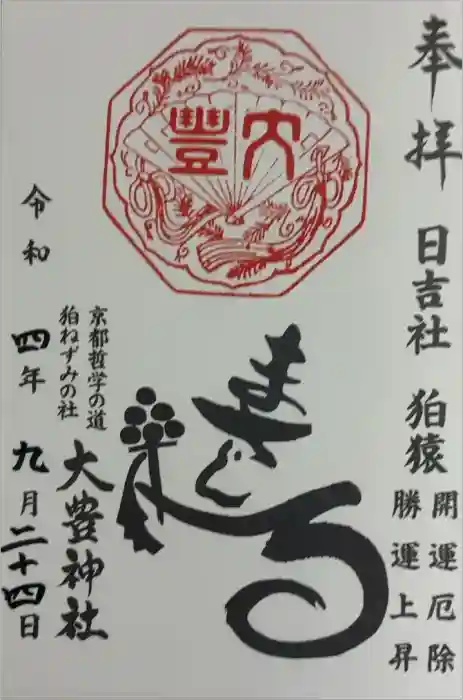 奉拝 日吉社 狛猿
開運厄除
勝運上昇
大豊
まさる
京都哲学の道
狛ねずみの社
大豊神社
令和四年九月二十四日